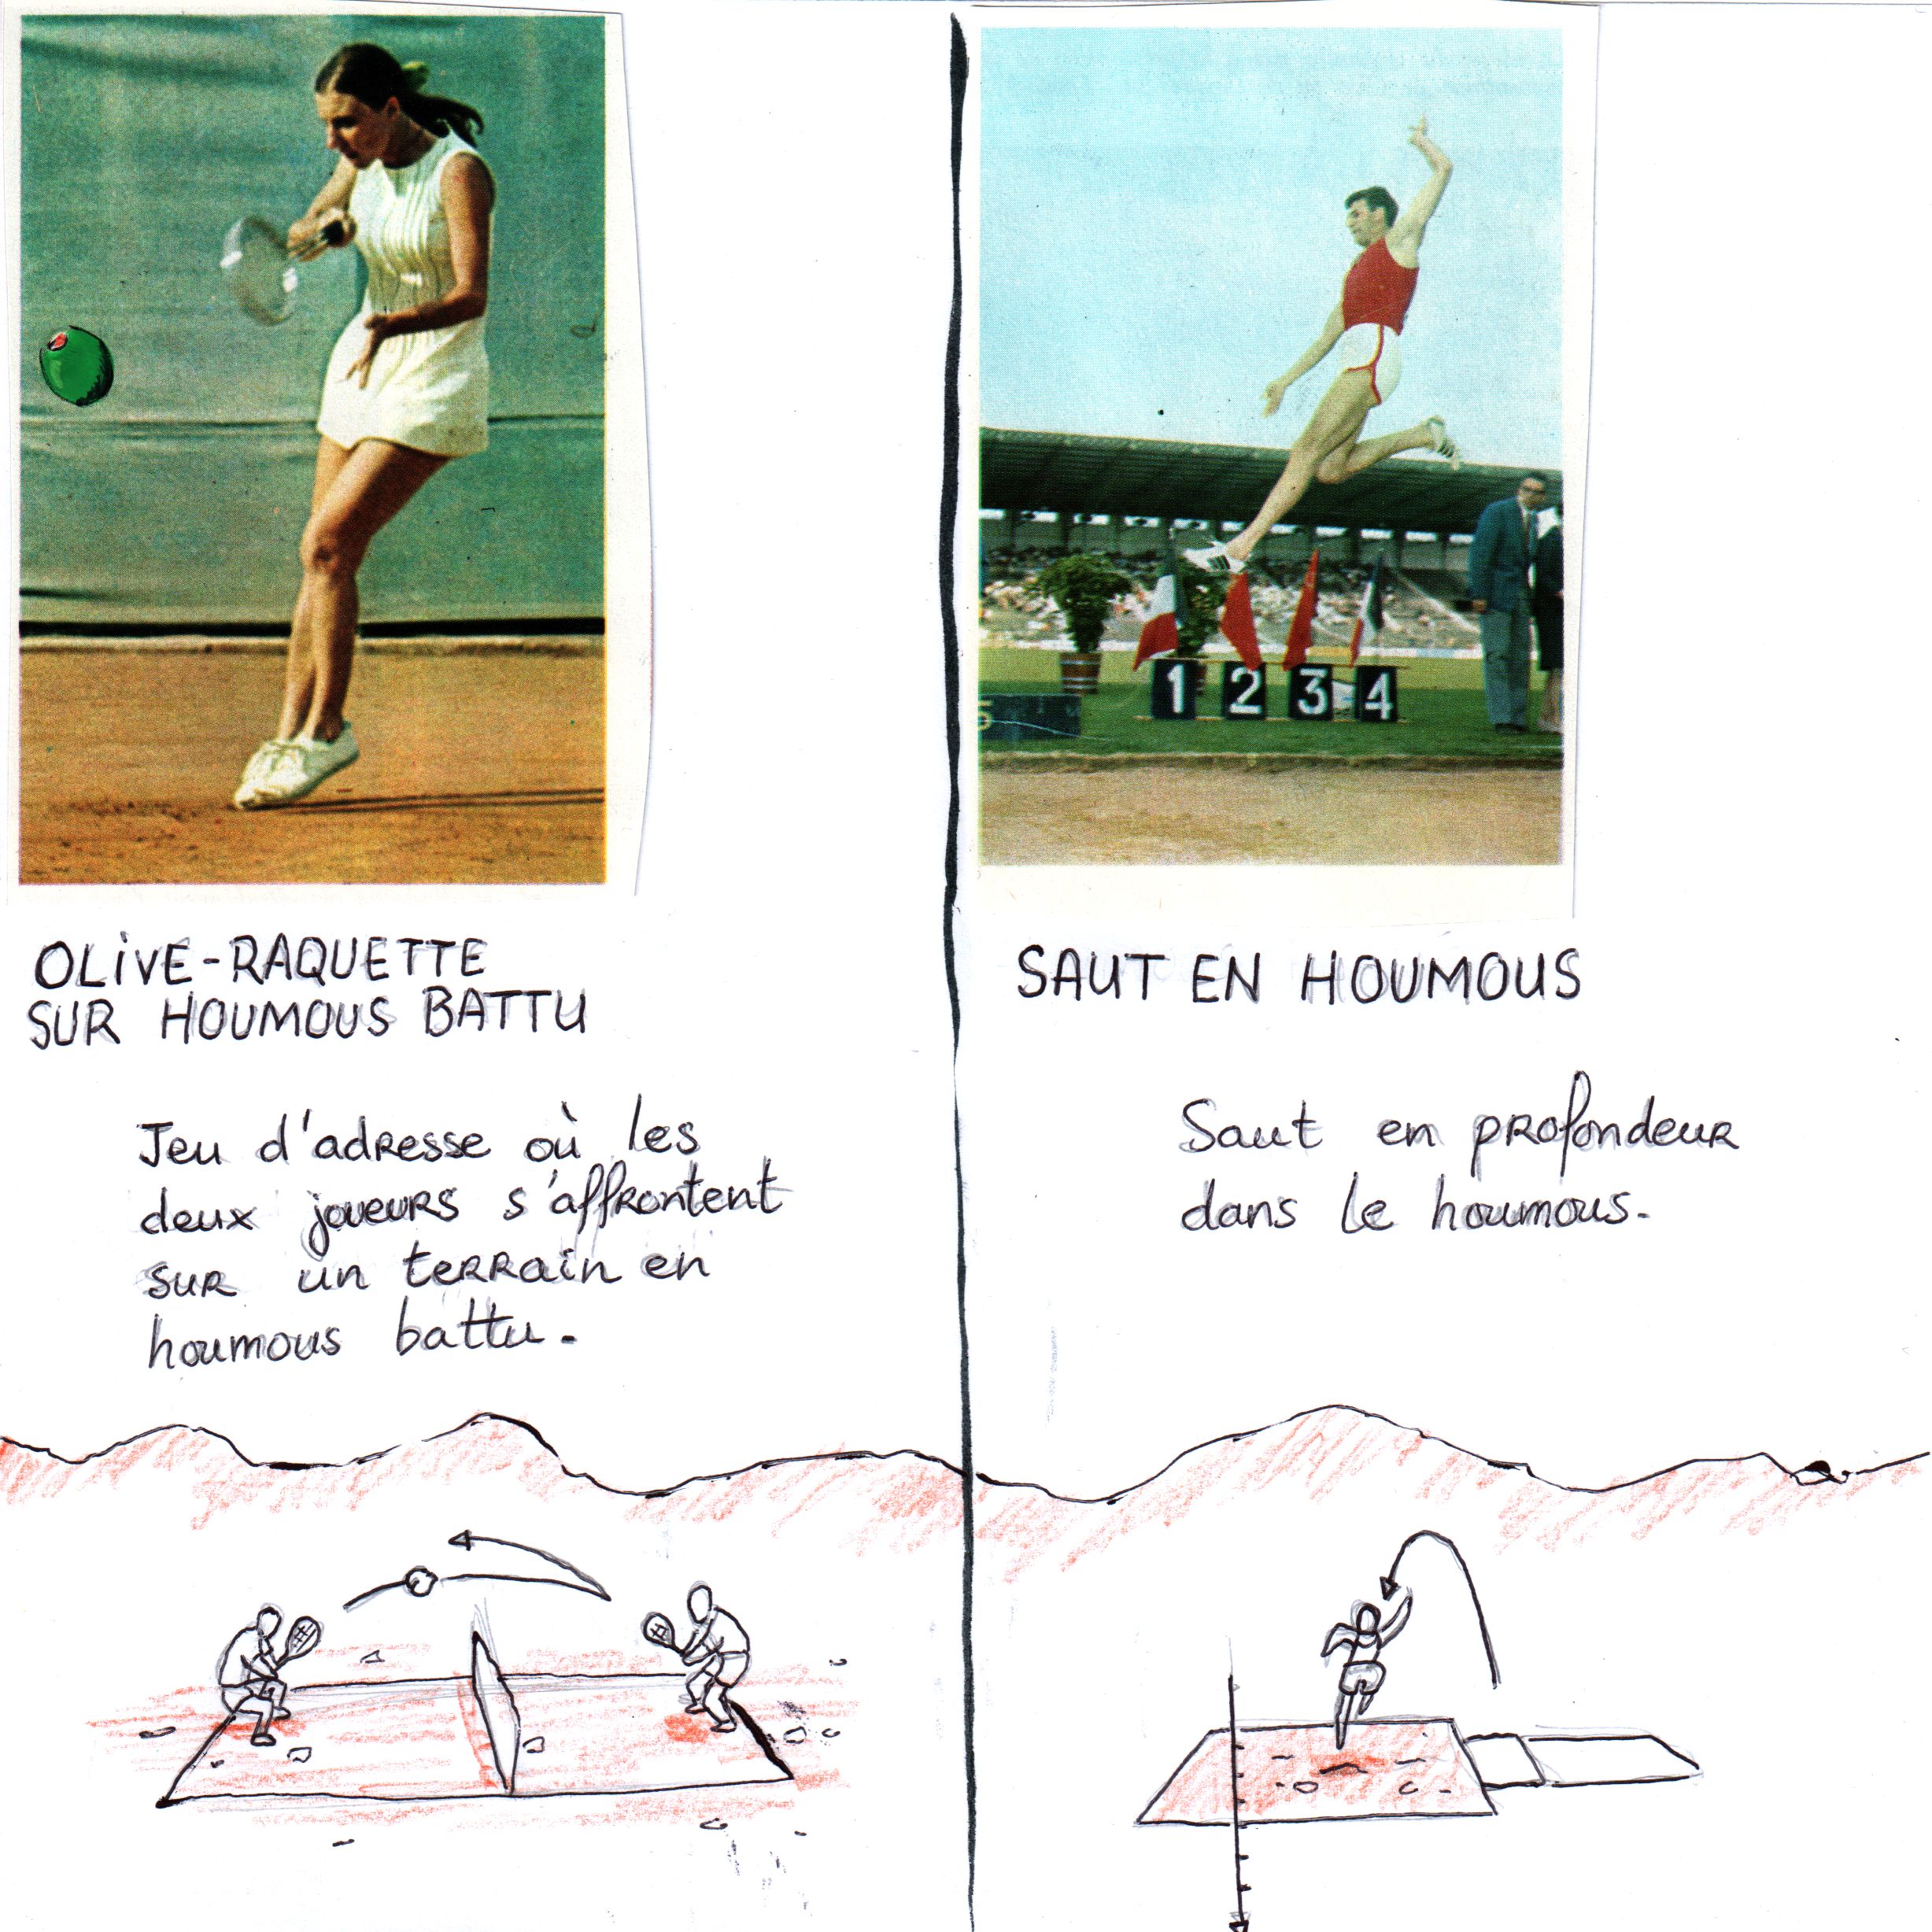 1 2 3 4
5
OLIVE-RAQUETTE
SUR HOUMOUS BATTU
Jeu d'adresse où les
deux joueurs s'affrontent
sur un terrain en
houmous battu.
SAUT EN HOUMOUS
Saut en profondeur
dans le houmous.